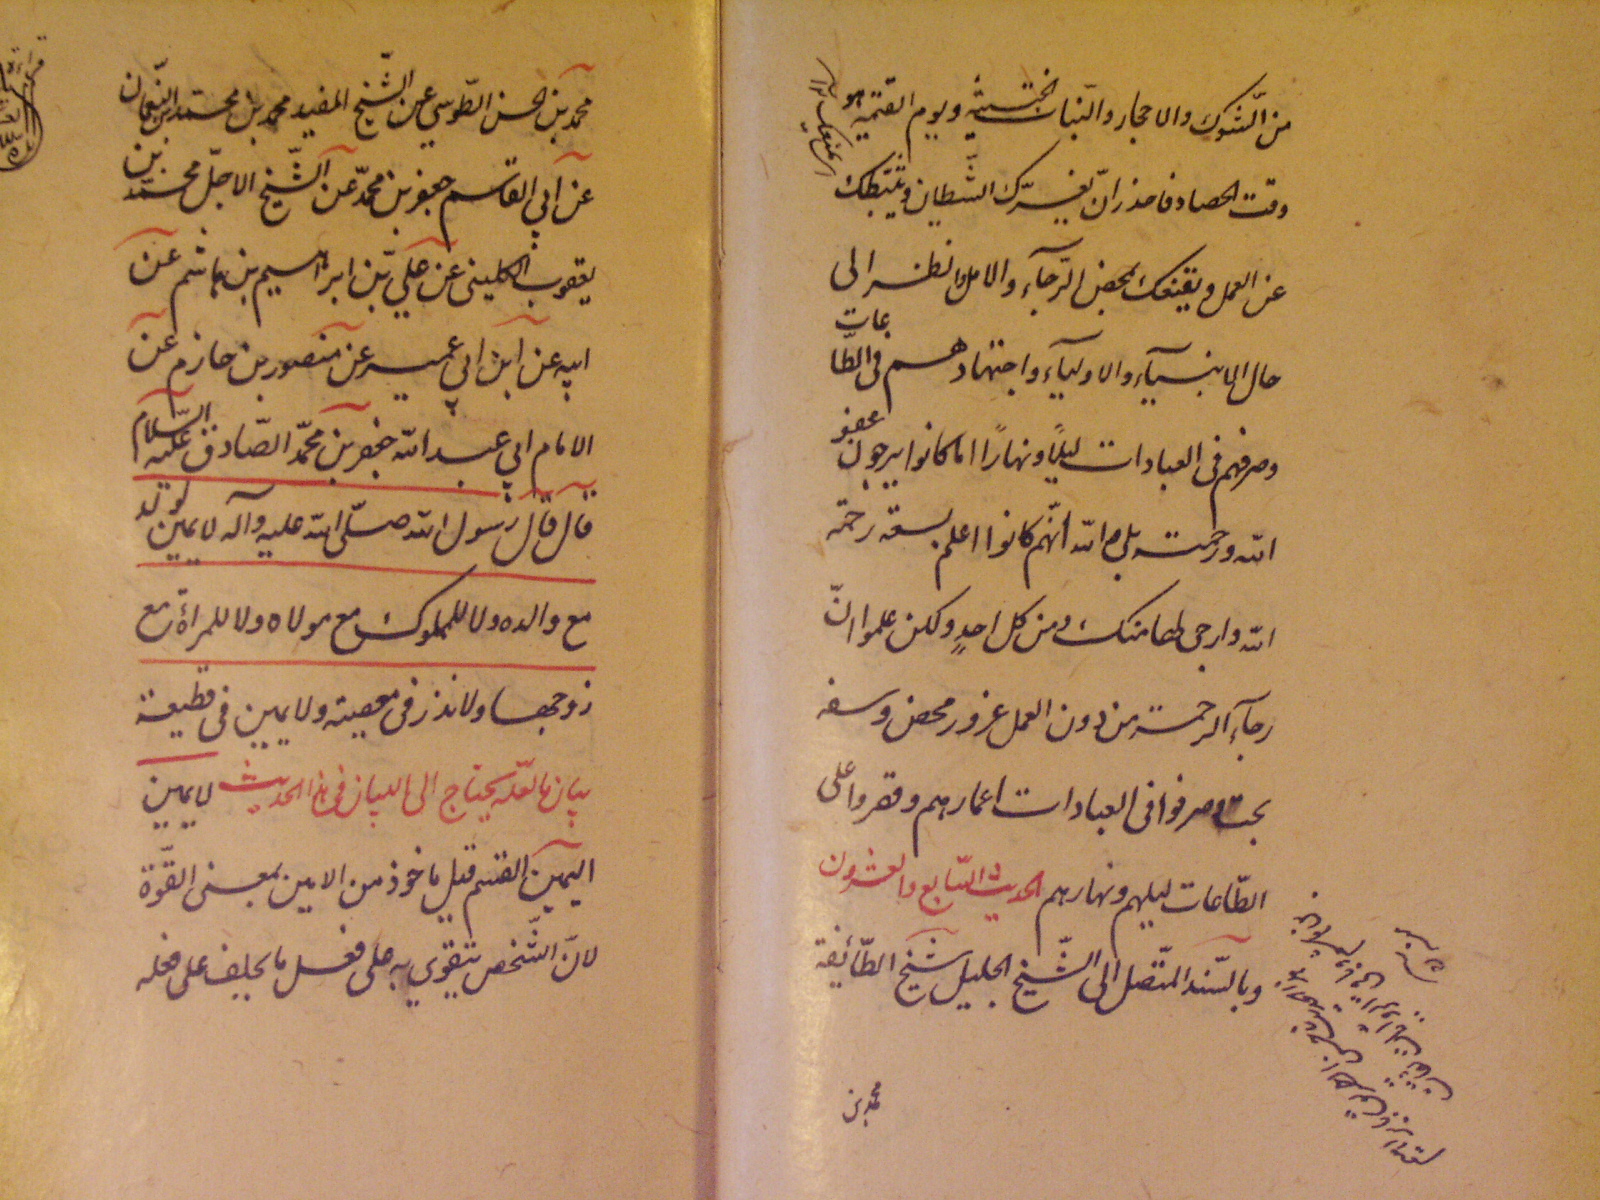 من الشوك والاحجار والنباتات الخبيثة ويوم القيمة هو
وقت الحصاد فاحذر ان يغرّك الشيطان ويثبّطك
عن العمل ويقنعك بمحض الرّجآء والامل وانظر الى
حال الانبيآء والاوليآء واجتهادهم فى الطّاعات
وصرفهم فى العبادات ليلًا ونهارًا اما كانوا يرجون عفو
الله ورحمته بلى والله انّهم كانوا اعلم بسعة رحمة
الله وارجى لها منك ومن كل احدٍ ولكن علموا انّ
رجآء الرحمة من دون العمل غرور محض وسفه
بحت فصرفوا فى العبادات اعمارهم وقصروا على
الطّاعات ليلهم ونهارهم الحديث السّابع والعشرون
وبالسّند المتّصل الى الشّيخ الجليل شيخ الطّائفة
محمد بن
محمد بن الحسن الطّوسي عن الشّيخ المفيد محمد بن محمّد بن النّعمان
عن ابي القاسم جعفر بن محمّد عن الشّيخ الاجلّ محمّد بن
يعقوب الكلينى عن علي بن ابراهيم بن هاشم عن
ابيه عن ابن ابي عمير عن منصور بن حازم عن
الامام ابي عبد الله جعفر بن محمّد الصّادق عليه السّلام
قال قال رسول الله صلّى الله عليه وآله لا يمين لولد
مع والده ولا للمملوك مع مولاه ولا للمرأة مع
زوجها ولا نذر فى معصية ولا يمين فى قطيعة
بيان ما لعلّه يحتاج الى البيان فى هذا الحديث لا يمين
اليمين القسم قيل ماخوذ من الايمن بمعنى القوّة
لانّ الشّخص يتقوي به على فعل ما يحلف على فعله